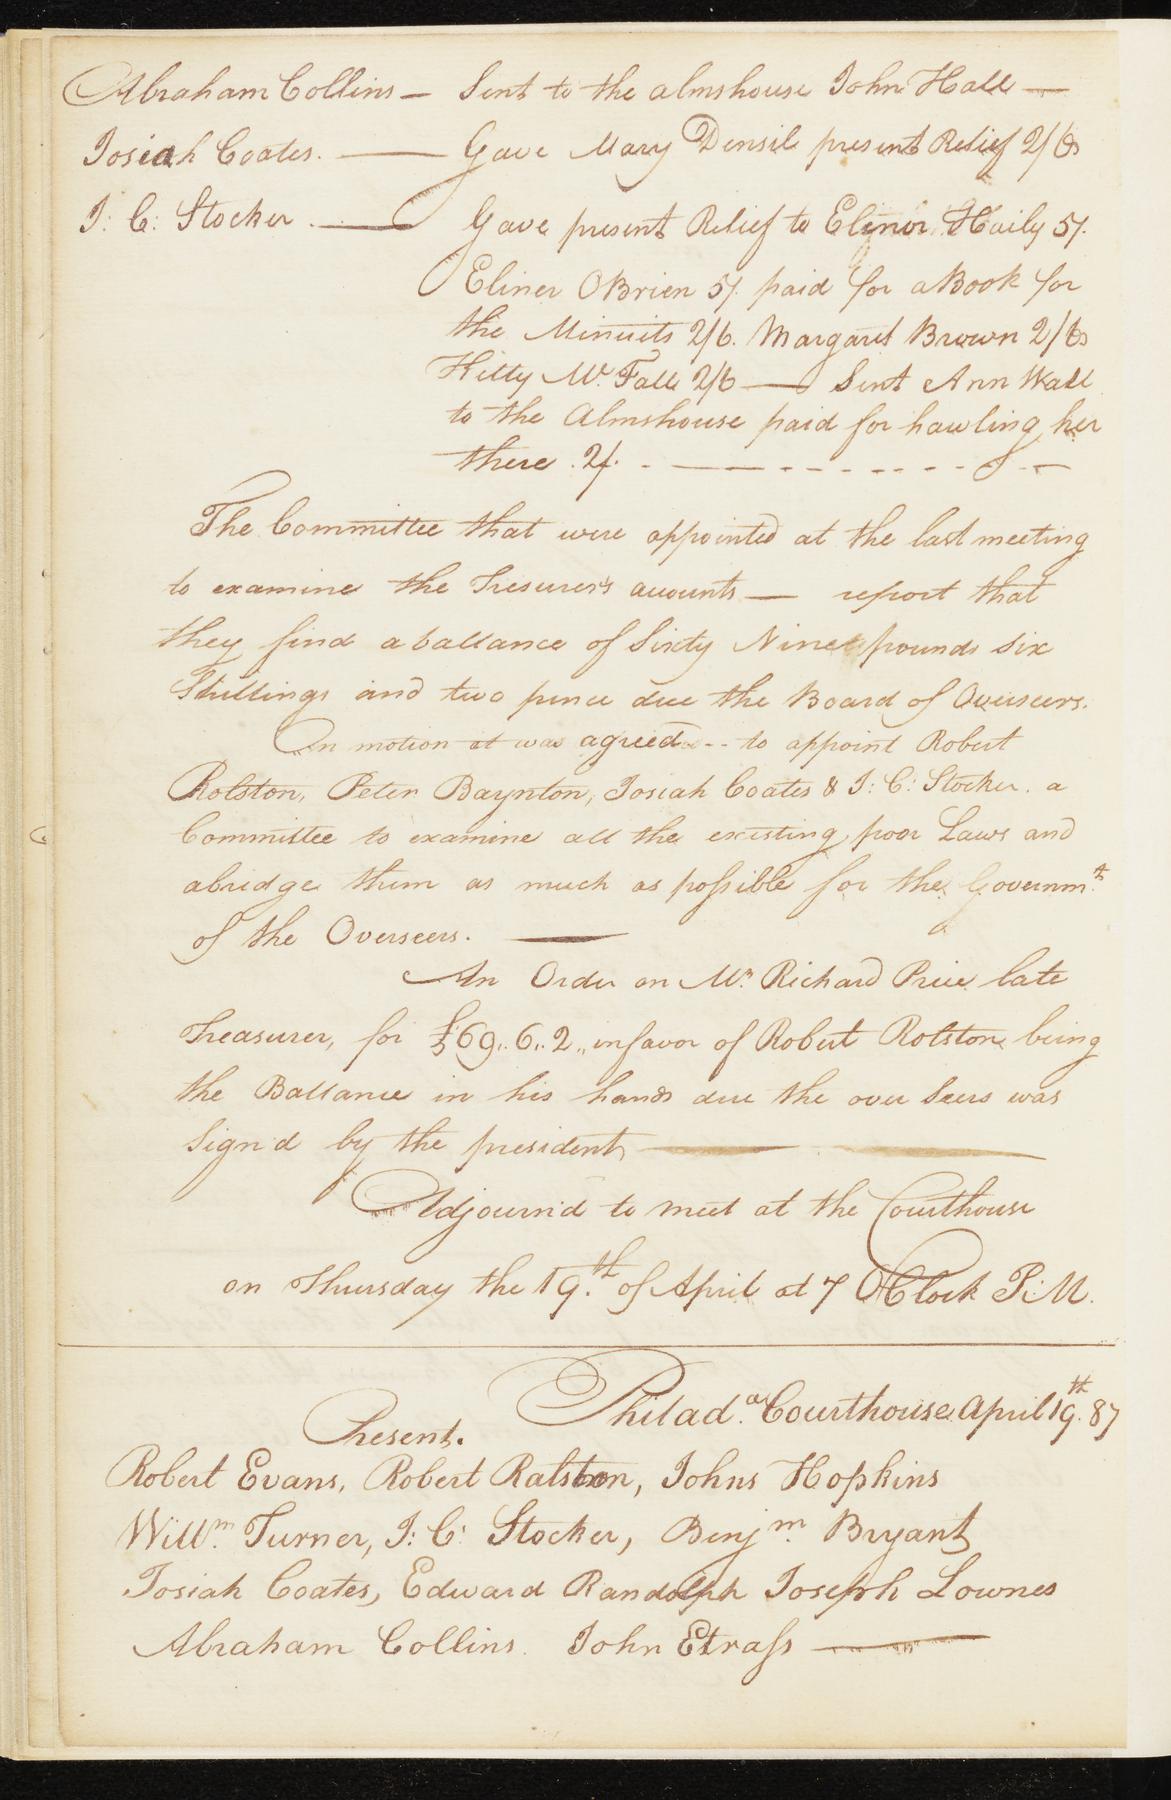 Abraham Collins — Sent to the almshouse John Hall —
Josiah Coates. — Gave Mary Densil present Relief 2/6
J: C: Stocker. — Gave present Relief to Elinor Haily 5/.
Eliner OBrien 5/. paid for a Book for
the Minuits 2/6. Margaret Brown 2/6
Kitty Mc. Fall 2/6 — Sent Ann Wall
to the Almshouse paid for hawling her
there .2/. - — — - - - - - - - —
The Committee that were appointed at the last meeting
to examine the Tresurer's acounts — report that
they find a ballance of Sixty Nine pounds six
Shillings and two pence due the Board of Overseers.
On motion it was agreed -- to appoint Robert
Rolston, Peter Baynton, Josiah Coates & J: C: Stocker. a
Committee to examine all the existing poor Laws and
abridge them as much as possible for the Governmt.
of the Overseers. —
An Order on Mr. Richard Price late
Treasurer, for £69.. 6.. 2.. in favor of Robert Rolston being
the Ballance in his hands due the over Seers was
Sign'd by the president —
Adjourn'd to meet at the Courthouse
on Thursday the 19th. of April at 7 OClock P: M.
Philada. Courthouse April 19th. 87
Present.
Robert Evans, Robert Ralston, Johns Hopkins
Willm. Turner, J: C: Stocker, Benjm. Bryant
Josiah Coates, Edward Randolph Joseph Lownes
Abraham Collins. John Etrass —